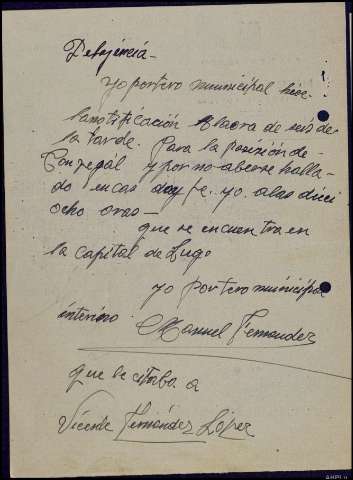 Delijencia -
yo portero municipal hice
la notificación a la ora de seis de
la tarde. Para la posizión de
y por no aberse halla-
do en cas doy fe. yo. a las dieci
ocho oras -
que se encuentra en
la capital de Lugo
yo portero municipal
interino
Manuel Fernandez
que le citaba a
Vicente Fernández López
A.H.P.L.